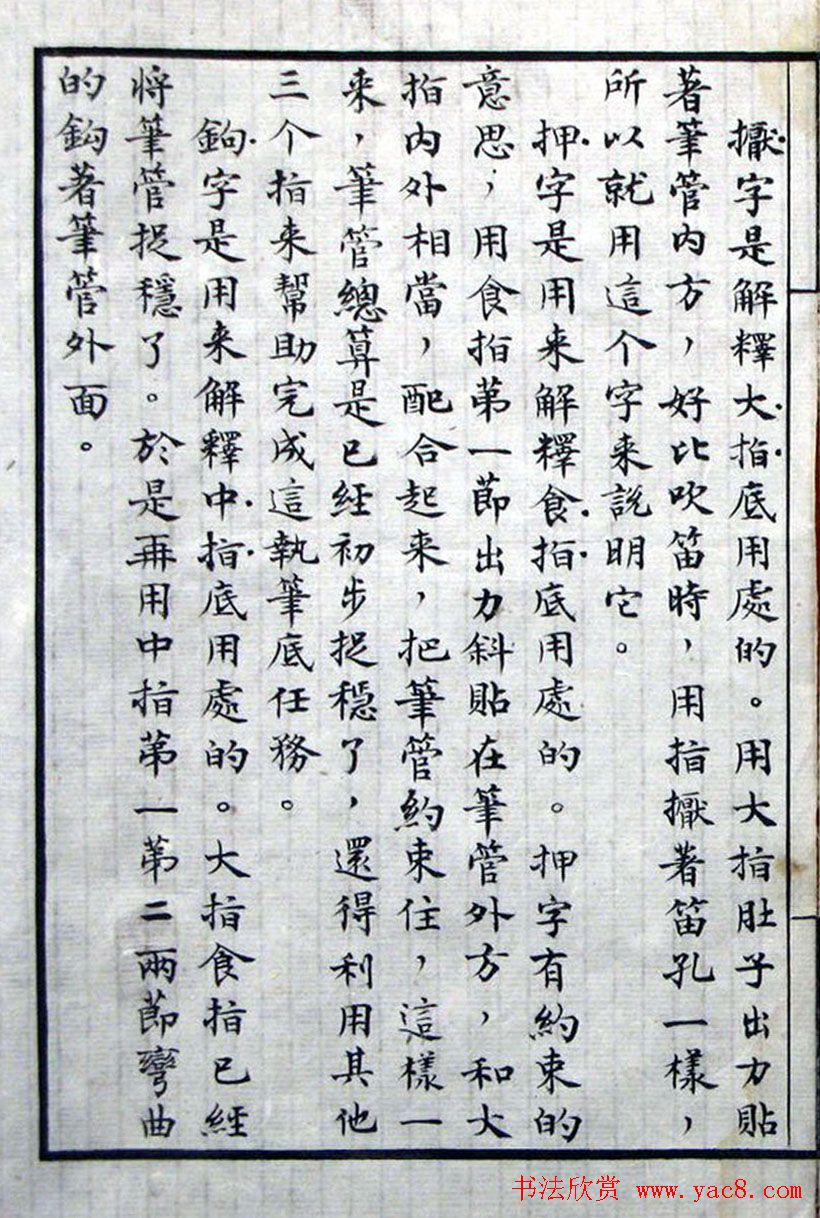 擫字是解釋大指底用處的。用大指肚子出力貼
著筆管内方，好比吹笛時，用指擫著笛孔一樣，
所以就用這个字来說明它。
押字是用来解釋食指底用處的。押字有約束的
意思，用食指第一節出力斜貼在筆管外方，和大
指内外相當，配合起来，把筆管約束住，這樣一
来，筆管總算是已經初步捉穩了，還得利用其他
三个指来幫助完成這執筆底任務。
鉤字是用来解釋中指底用處的。大指食指已經
將筆管捉穩了。於是再用中指第一第二兩節彎曲
的鉤著筆管外面。
书法欣赏 www.yac8.com